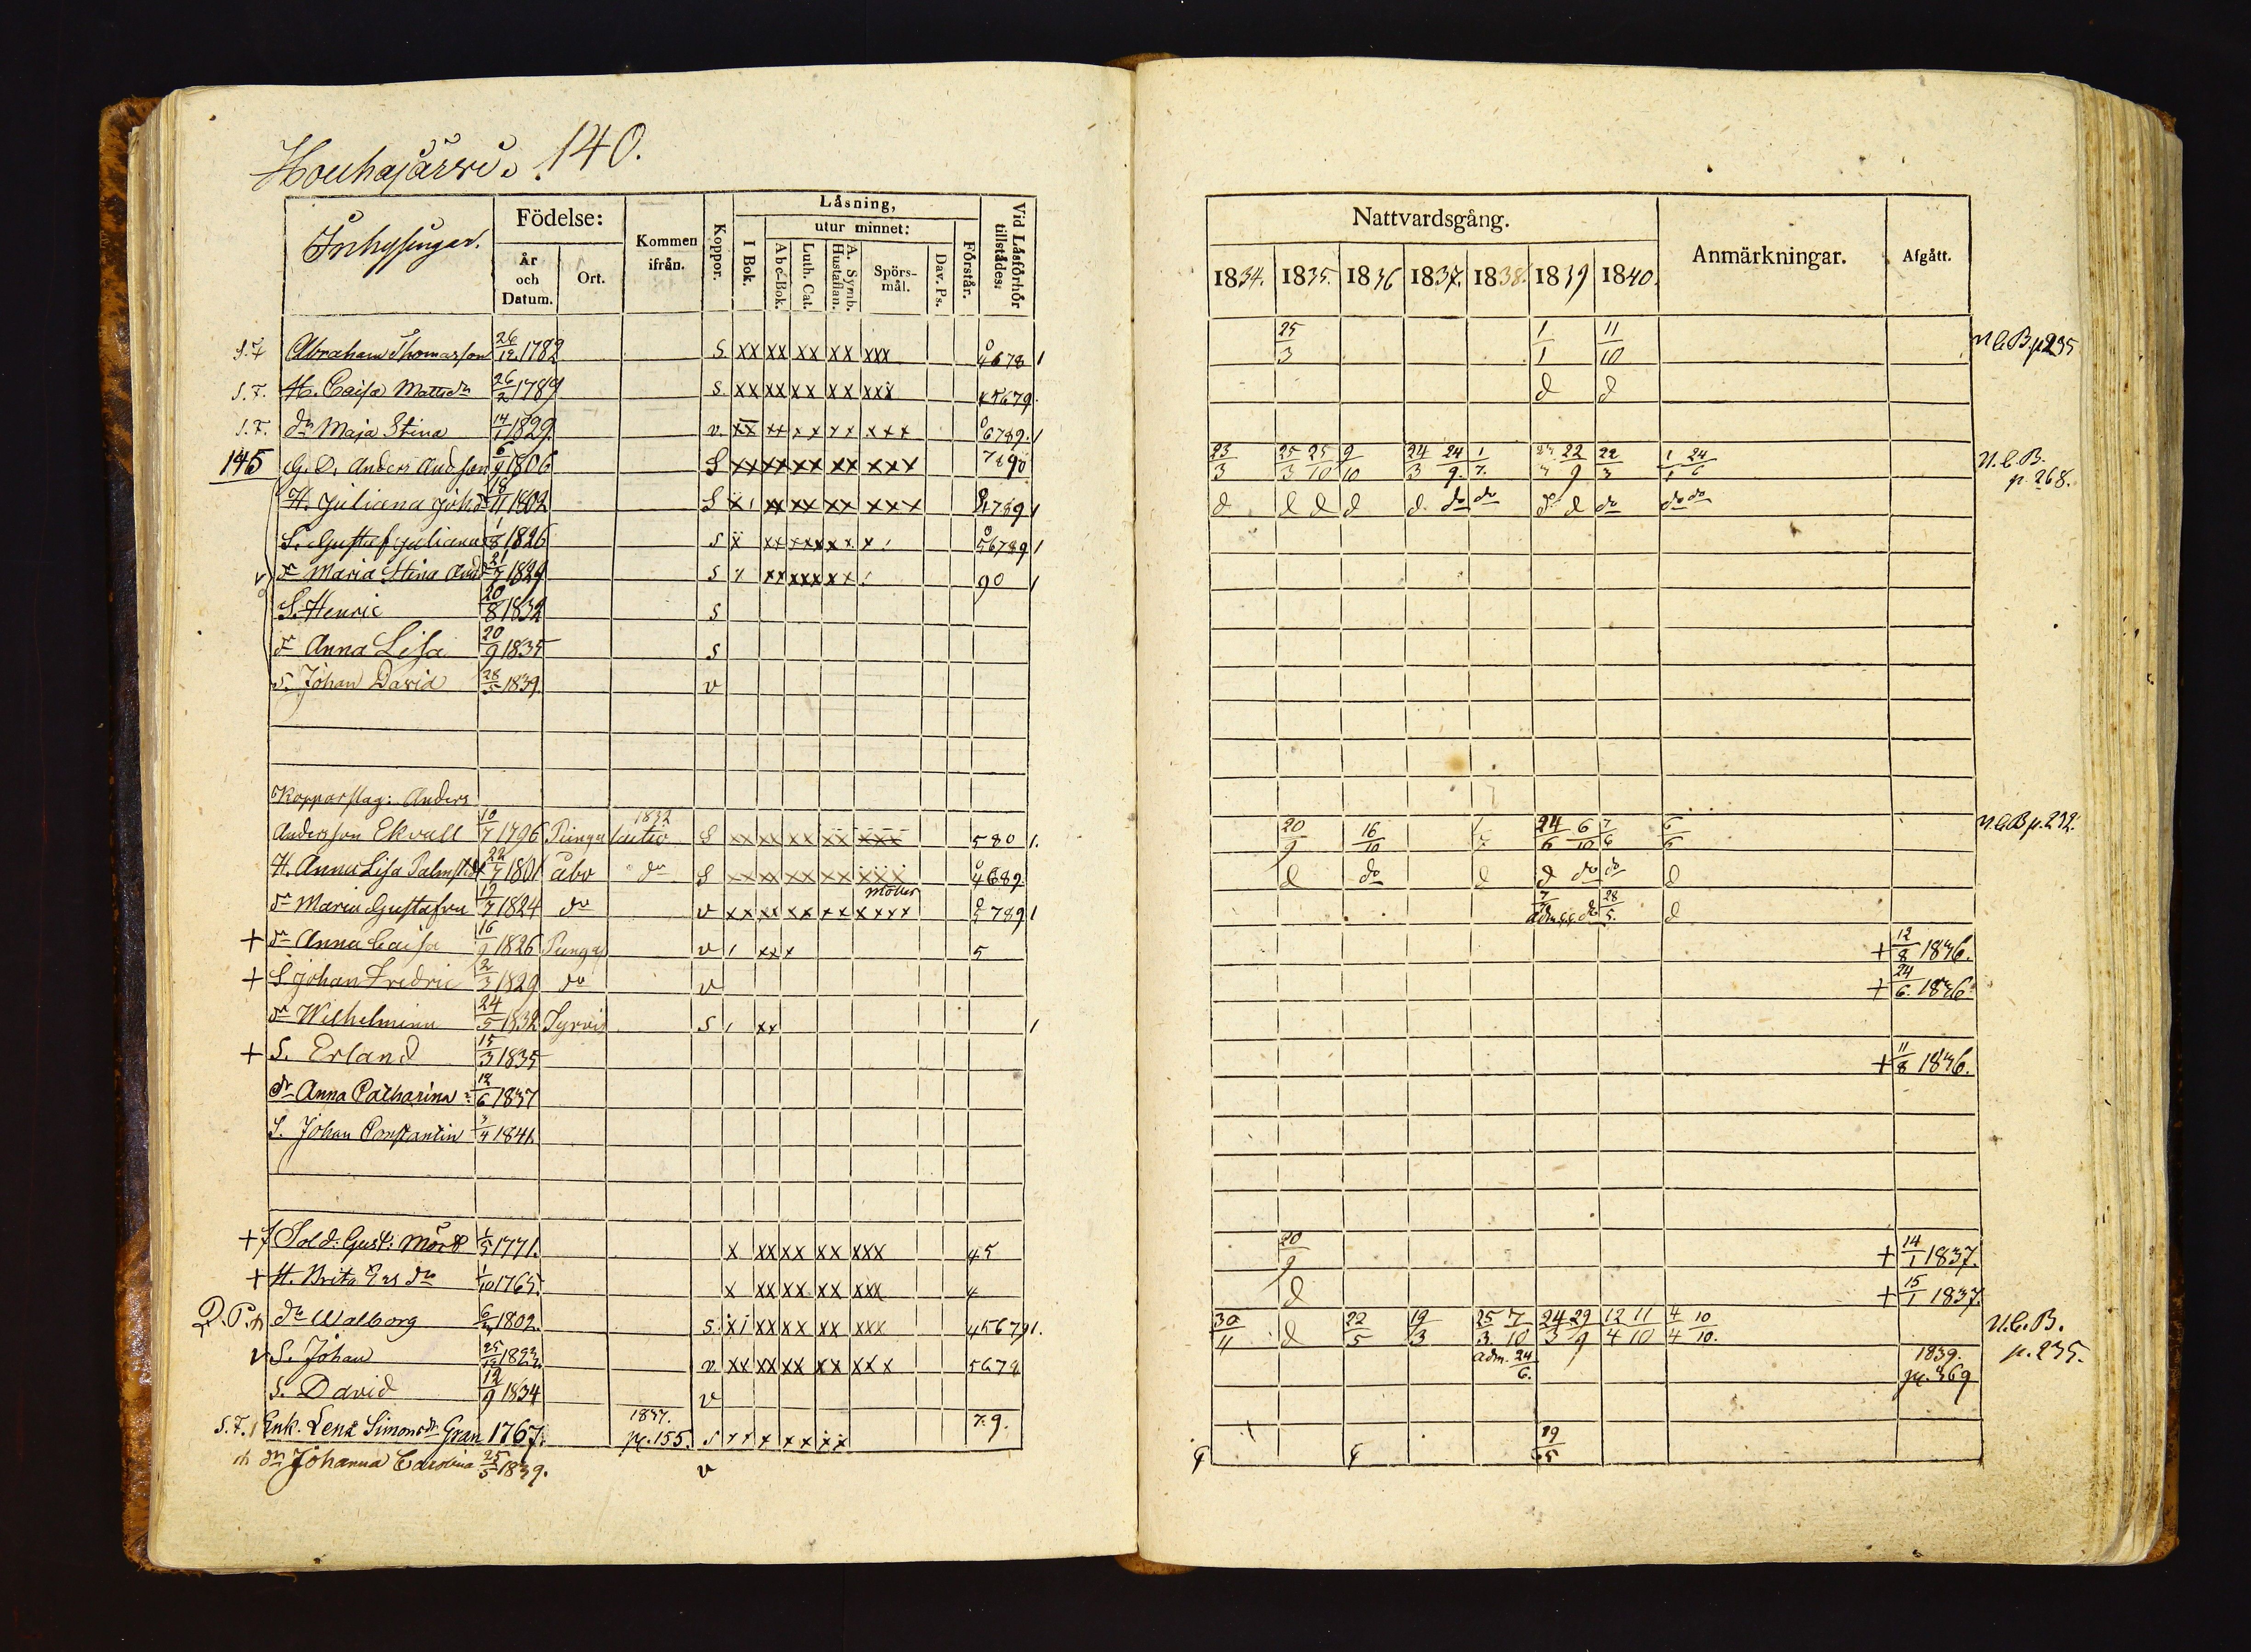 Houhajärvi. 140.
Inhysingar.
Födelse:
År och Datum.
Ort.
Kommen ifrån.
Koppor.
Läsning,
I Bok.
utur minnet:
Abc-Bok.
Luth. Cat.
A. Symb. Hustaflan.
Spörs-mål.
Dav. Ps.
Förstår.
Vid Läsförhör tillstädes:
S.F. Abraham Thomasson 26/12 1782 S xx xx xx xx xxx 0 4678 1
S.F. H. Caisa Mattsdr 26/2 1789 S. xx xx xx xx xxx 45679.
S.F. dr Maja Stina 14/1 1829. v. xx xx xx xx xxx 0 6789. 1
145 G.D. Anders Andsson 6/9 1806 S xx xx xx xx xxx 7890
H. Juliana Joh.dr 18/11 1802 S xx xx xx xxx 789 1
S. Gustaf Juliana 1/8 1826 S x xx xx xx x 0 56789 1
dr Maria Stina And.dr 21/7 1829 S xx xx xx 90 1
S. Henric 20/8 1832 S
dr Anna Lisa 20/9 1835 S
S. Johan David 28/5 1839. v
Kopparslag: Anders
Andersson Ekvall 10/7 1796 Punga 1832 S xx xx xx xx xxx 580 1.
H. Anna Lisa Palmstedt 22/7 1801 Åbo do S xx xx xx xx xxx 0 4689
dr Maria Gustafva 12/7 1824 do v xx xx xx xx xxxx 0 5789 1
+ dr Anna Caisa 16/9 1826 Punga v xx x 5
+ S. Johan Fredric 2/3 1829 do v
dr Wilhelmina 24/5 1832 Tyrvis S xx 1
+ S. Erland 15/3 1835
dr Anna Catharina 12/6 1837
S. Johan Constantin 3/4 1841.
+ Sold: Gust: Mört 1/5 1771. x xx xx xx xxx 45
+ H. Brita Ersdr 1/10 1765. x xx xx xx xxx 4
dr Walborg 6/4 1802. S. xx xx xx xxx 45679 1.
v S. Johan 25/12 1823. v. xx xx xx xx xxx 5678
S. David 12/9 1834 v
S.F. Enk. Lena Simonsdr Gran 1767. 1837. p. 155. S xx x xx xx 7.9.
dr Johanna Carolina 25/5 1839. v
Nattvardsgång.
Anmärkningar.
Afgått.
1834. 1835. 1836 1837. 1838. 1839 1840.
25/3 1/1 11/10 N.C.B. p. 235
d d
23/3 25/3 25/10 9/10 24/3 24/9. 1/7. 22/9 22/3 1/1 24/6 N.C.B. p. 268.
d d d d d do do d d do do do
20/9 16/10 24/6 6/10 7/6 6/6 N.C.B p. 232.
d do d d do do d
28/5. d
+ 12/8 1836.
+ 24/6. 1836.
+ 11/8 1836.
20/9 + 14/1 1837.
d + 15/1 1837.
30/11 d 22/5 19/3 25/3. 7/10 24/3 29/9 12/4 11/10 4/4 10/10. N.C.B. p. 235.
adm. 24/6. 1839. p. 369
19/5